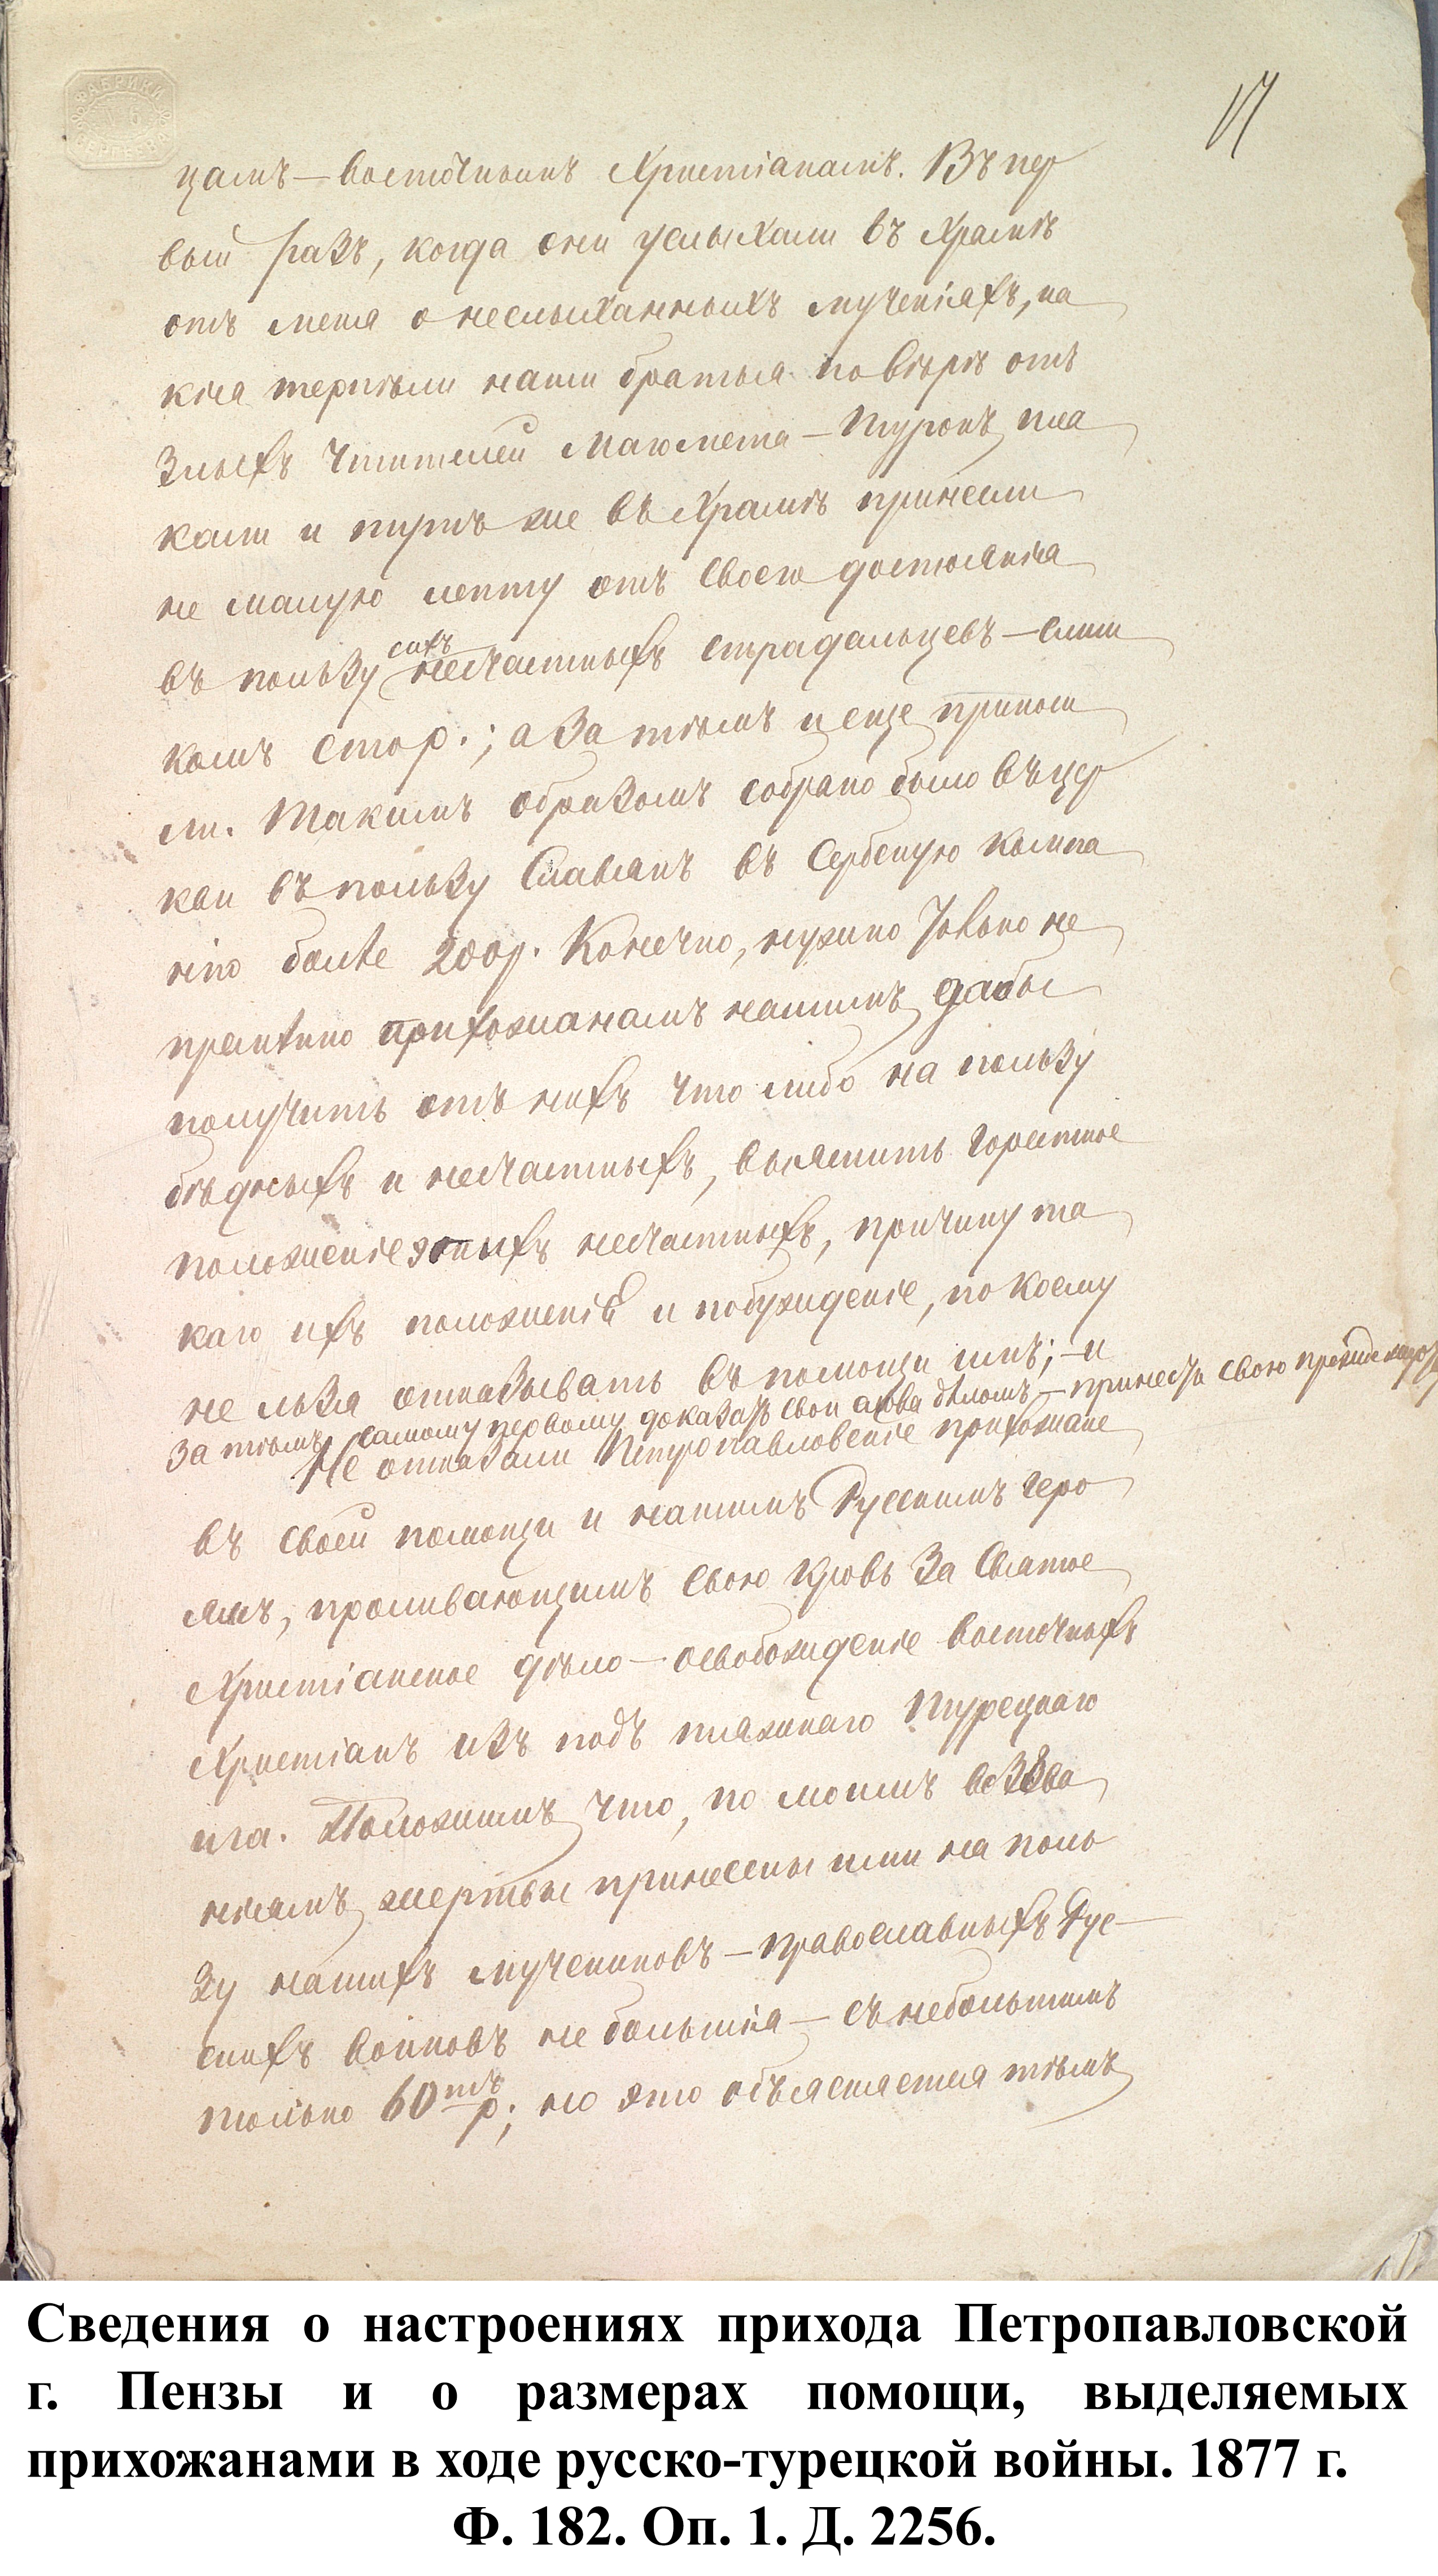 17
ФАБРИКИ
СЕРГЕЕВА
цамъ – восточнымъ Христіанамъ. Въ пер
вый разъ, когда они услыхали въ Храмѣ
отъ меня о неслыханныхъ мученіяхъ, ка
кія терпѣли наши братья по вѣрѣ отъ
злыхъ чтителей Магомета – Турокъ, пла
кали и тутъ же въ Храмѣ принесли
не малую лепту отъ своего достоянія
въ пользу сихъ несчастныхъ страдальцевъ – слиш
комъ сто р.; а за тѣмъ и еще приноси
ли. Такимъ образомъ собрано было въ цер
кви въ пользу Славянъ въ Сербскую кампа
нію болѣе 200 р. Конечно, нужно только не
премѣнно прихожанамъ нашимъ, дабы
получить отъ нихъ что либо на пользу
бѣдныхъ и несчастныхъ, выяснить горестное
положеніе этихъ несчастныхъ, причину та
каго ихъ положенія и побужденіе, по коему
не льзя отказывать въ помощи имъ; – и
за тѣмъ, самому первому доказать свои слова дѣломъ, – принесть свою прежде
Не отказали Петропавловскіе прихожане
въ своей помощи и нашимъ Русскимъ геро
ямъ, проливающимъ свою кровь за Святое
Христіанское дѣло – освобожденіе восточныхъ
Христіанъ изъ подъ тяжкаго Турецкаго
ига. Положимъ, что, по моимъ воззва
ніямъ, жертвы принесены ими на поль
зу нашихъ мучениковъ – православныхъ Рус–
скихъ воиновъ не большія – съ небольшимъ
только 60тъ р.; но это объясняется тѣмъ,
Сведения о настроениях прихода Петропавловской
г. Пензы и о размерах помощи, выделяемых
прихожанами в ходе русско-турецкой войны. 1877 г.
Ф. 182. Оп. 1. Д. 2256.